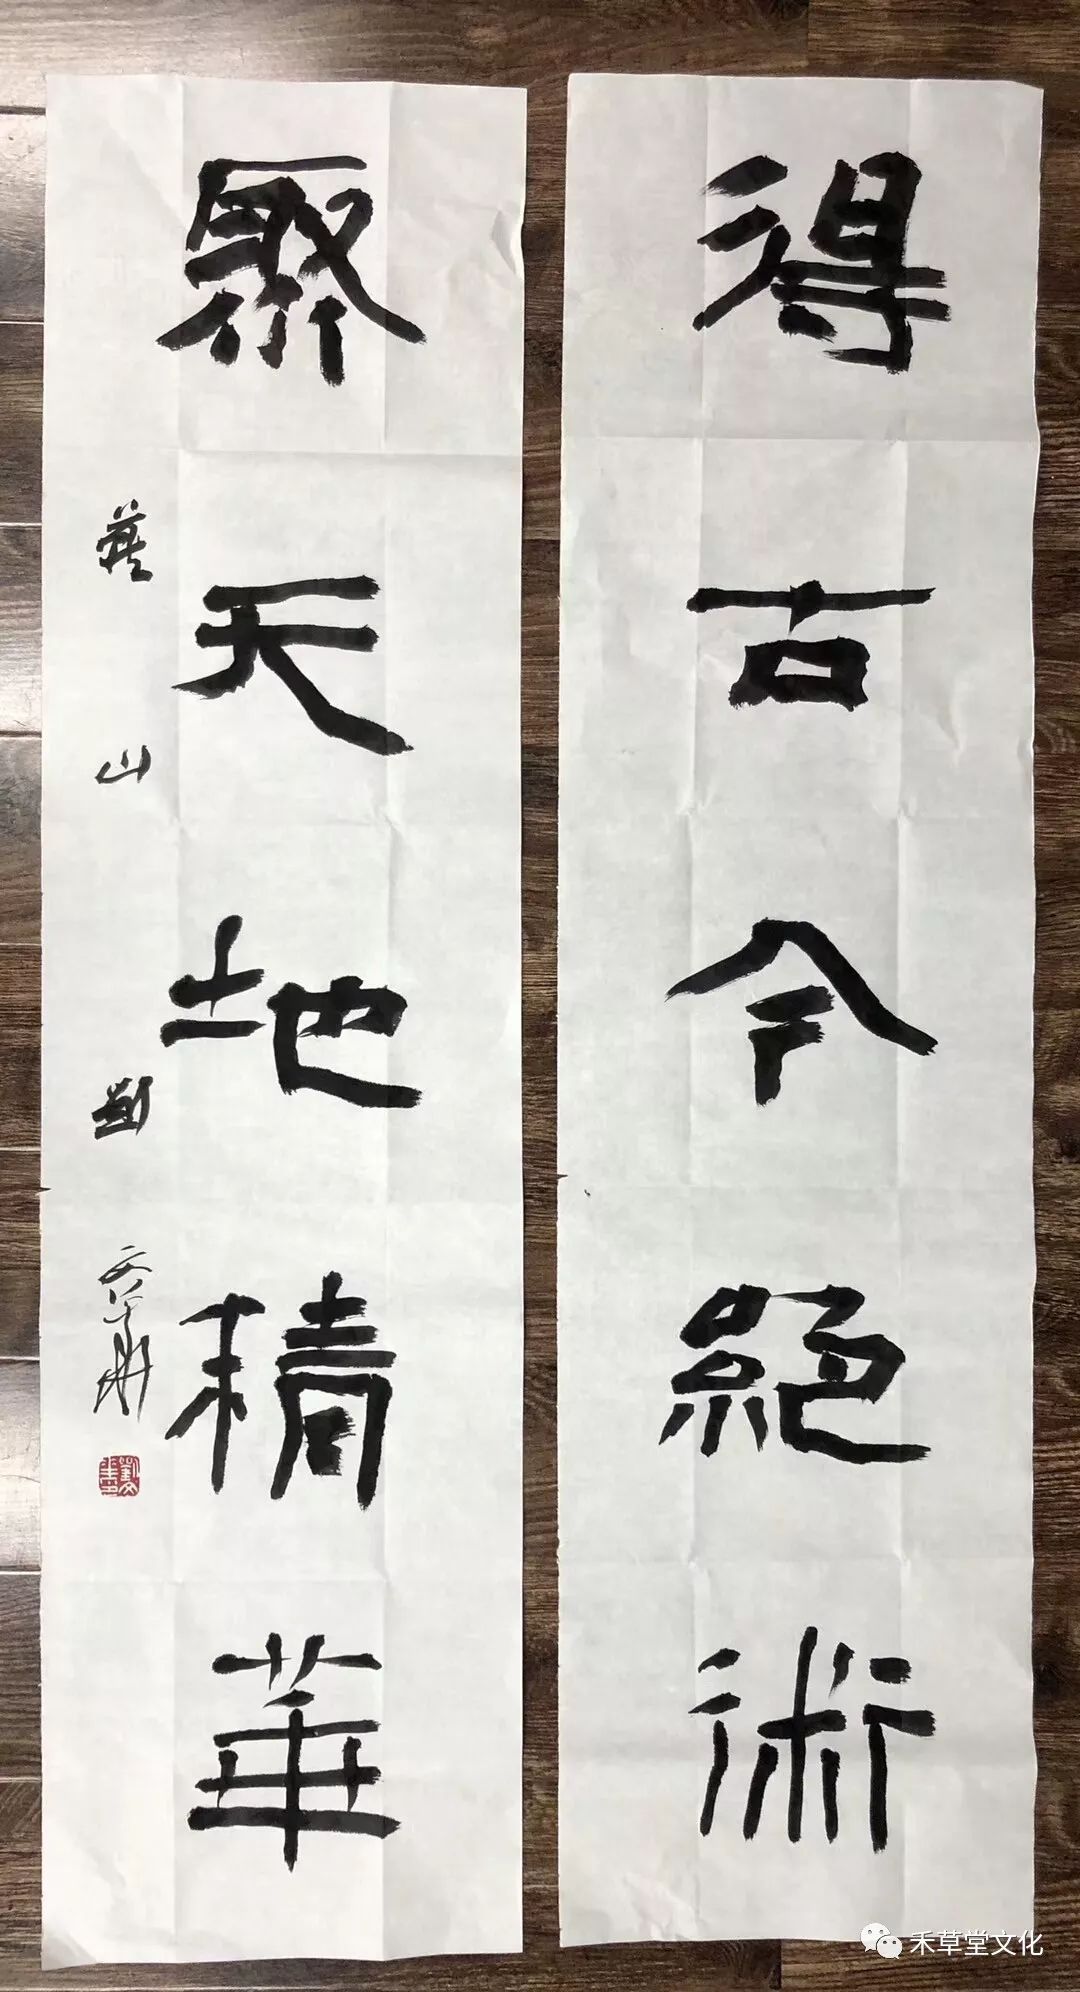 得古今絕術
聚天地精華
燕山劉文
禾草堂文化